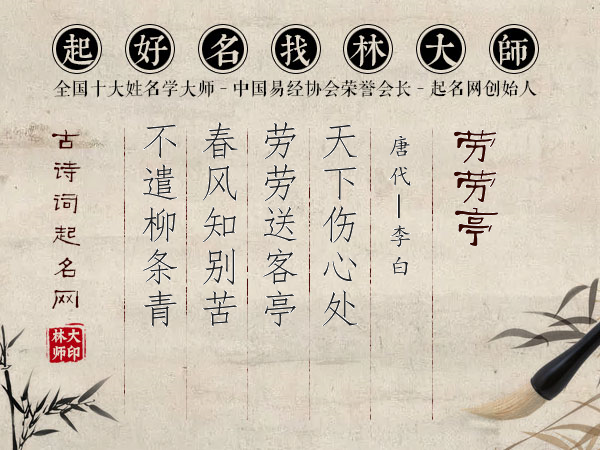 起好名找林大師
全国十大姓名学大师 - 中国易经协会荣誉会长 - 起名网创始人
劳劳亭
唐代—李白
天下伤心处
劳劳送客亭
春风知别苦
不遣柳条青
古诗词起名网
林大师印